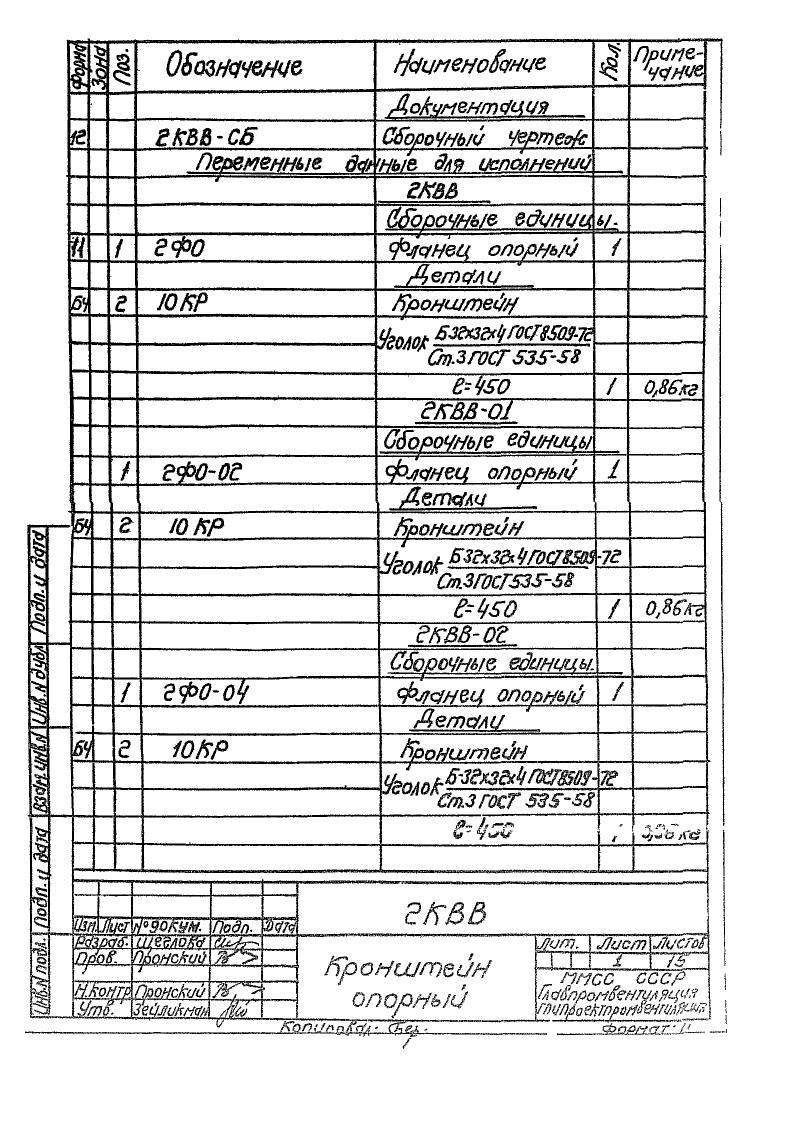 Форма Зона Поз. Обозначение Наименование Кол. Примечание
Документация
12 2КВВ-СБ Сборочный чертеж
Переменные данные для исполнений
2КВВ
Сборочные единицы.
11 1 2ФО Фланец опорный 1
Детали
БЧ 2 10КР Кронштейн
Уголок Б 32х32х4 ГОСТ 8509-72
Ст.3 ГОСТ 535-58
ℓ=450 1 0,86кг
2КВВ-01
Сборочные единицы
1 2ФО-02 Фланец опорный 1
Детали
БЧ 2 10КР Кронштейн
Уголок Б 32х32х4 ГОСТ 8509-72
Ст.3 ГОСТ 535-58
ℓ=450 1 0,86кг
2КВВ-02
Сборочные единицы.
1 2ФО-04 Фланец опорный 1
Детали
БЧ 2 10КР Кронштейн
Уголок Б-32х32х4 ГОСТ 8509-72
Ст.3 ГОСТ 535-58
ℓ=450
Подп. и дата
Инв.N дубл
Взам.инв.N
Подп. и дата
Инв.N подл.
2КВВ
Изм. Лист N° докум. Подп. Дата
Разраб. Щеглова
Пров. Пронский
Н.контр Пронский
Утв. Зейликман
Кронштейн
опорный
Лит. Лист Листов
1 15
ММСС СССР
Главпромвентиляция
Гипроектпромвентиляция
Копировал: Формат: 11